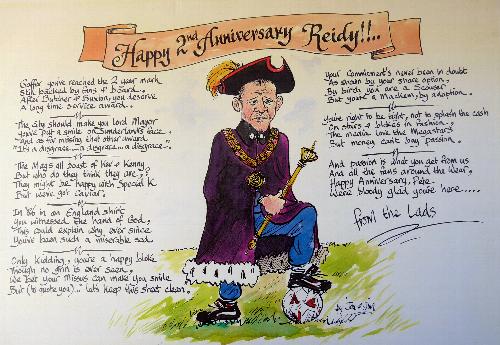 Happy 2nd Anniversary Reidy!!..
Gaffer you've reached the 2 year mark
Still backed by fans & board.
After Butcher & Buxton, you deserve
A long time service award.
The City should make you Lord Mayor
You've put a smile on Sunderland's face
and as for missing out that other award
"It's a disgrace...a disgrace...a disgrace"
The Mags all boast of Kev & Kenny
But who do they think they are?
They might be happy with Special K
But we've got Caviar.
In '86 in an England shirt
You witnessed the hand of God,
This could explain why, ever since
You've been such a miserable sod.
Only kidding, you're a happy bloke
Though no grin is ever seen,
We bet your Missus can make you smile
But (to quote you)..." let's keep this sheet clean.
Your commitment's never been in doubt
As shown by your share option,
By birth you are a Scouser
But you're a Mackem, by adoption.
You're right to be tight, not to splash the cash
On stars & blokes in fashion,
The media love the Megastars
But money can't buy passion.
And passion is what you get from us
And all the fans around the Wear,
Happy Anniversary, Pete
We're bloody glad you're here.....
from the Lads
by